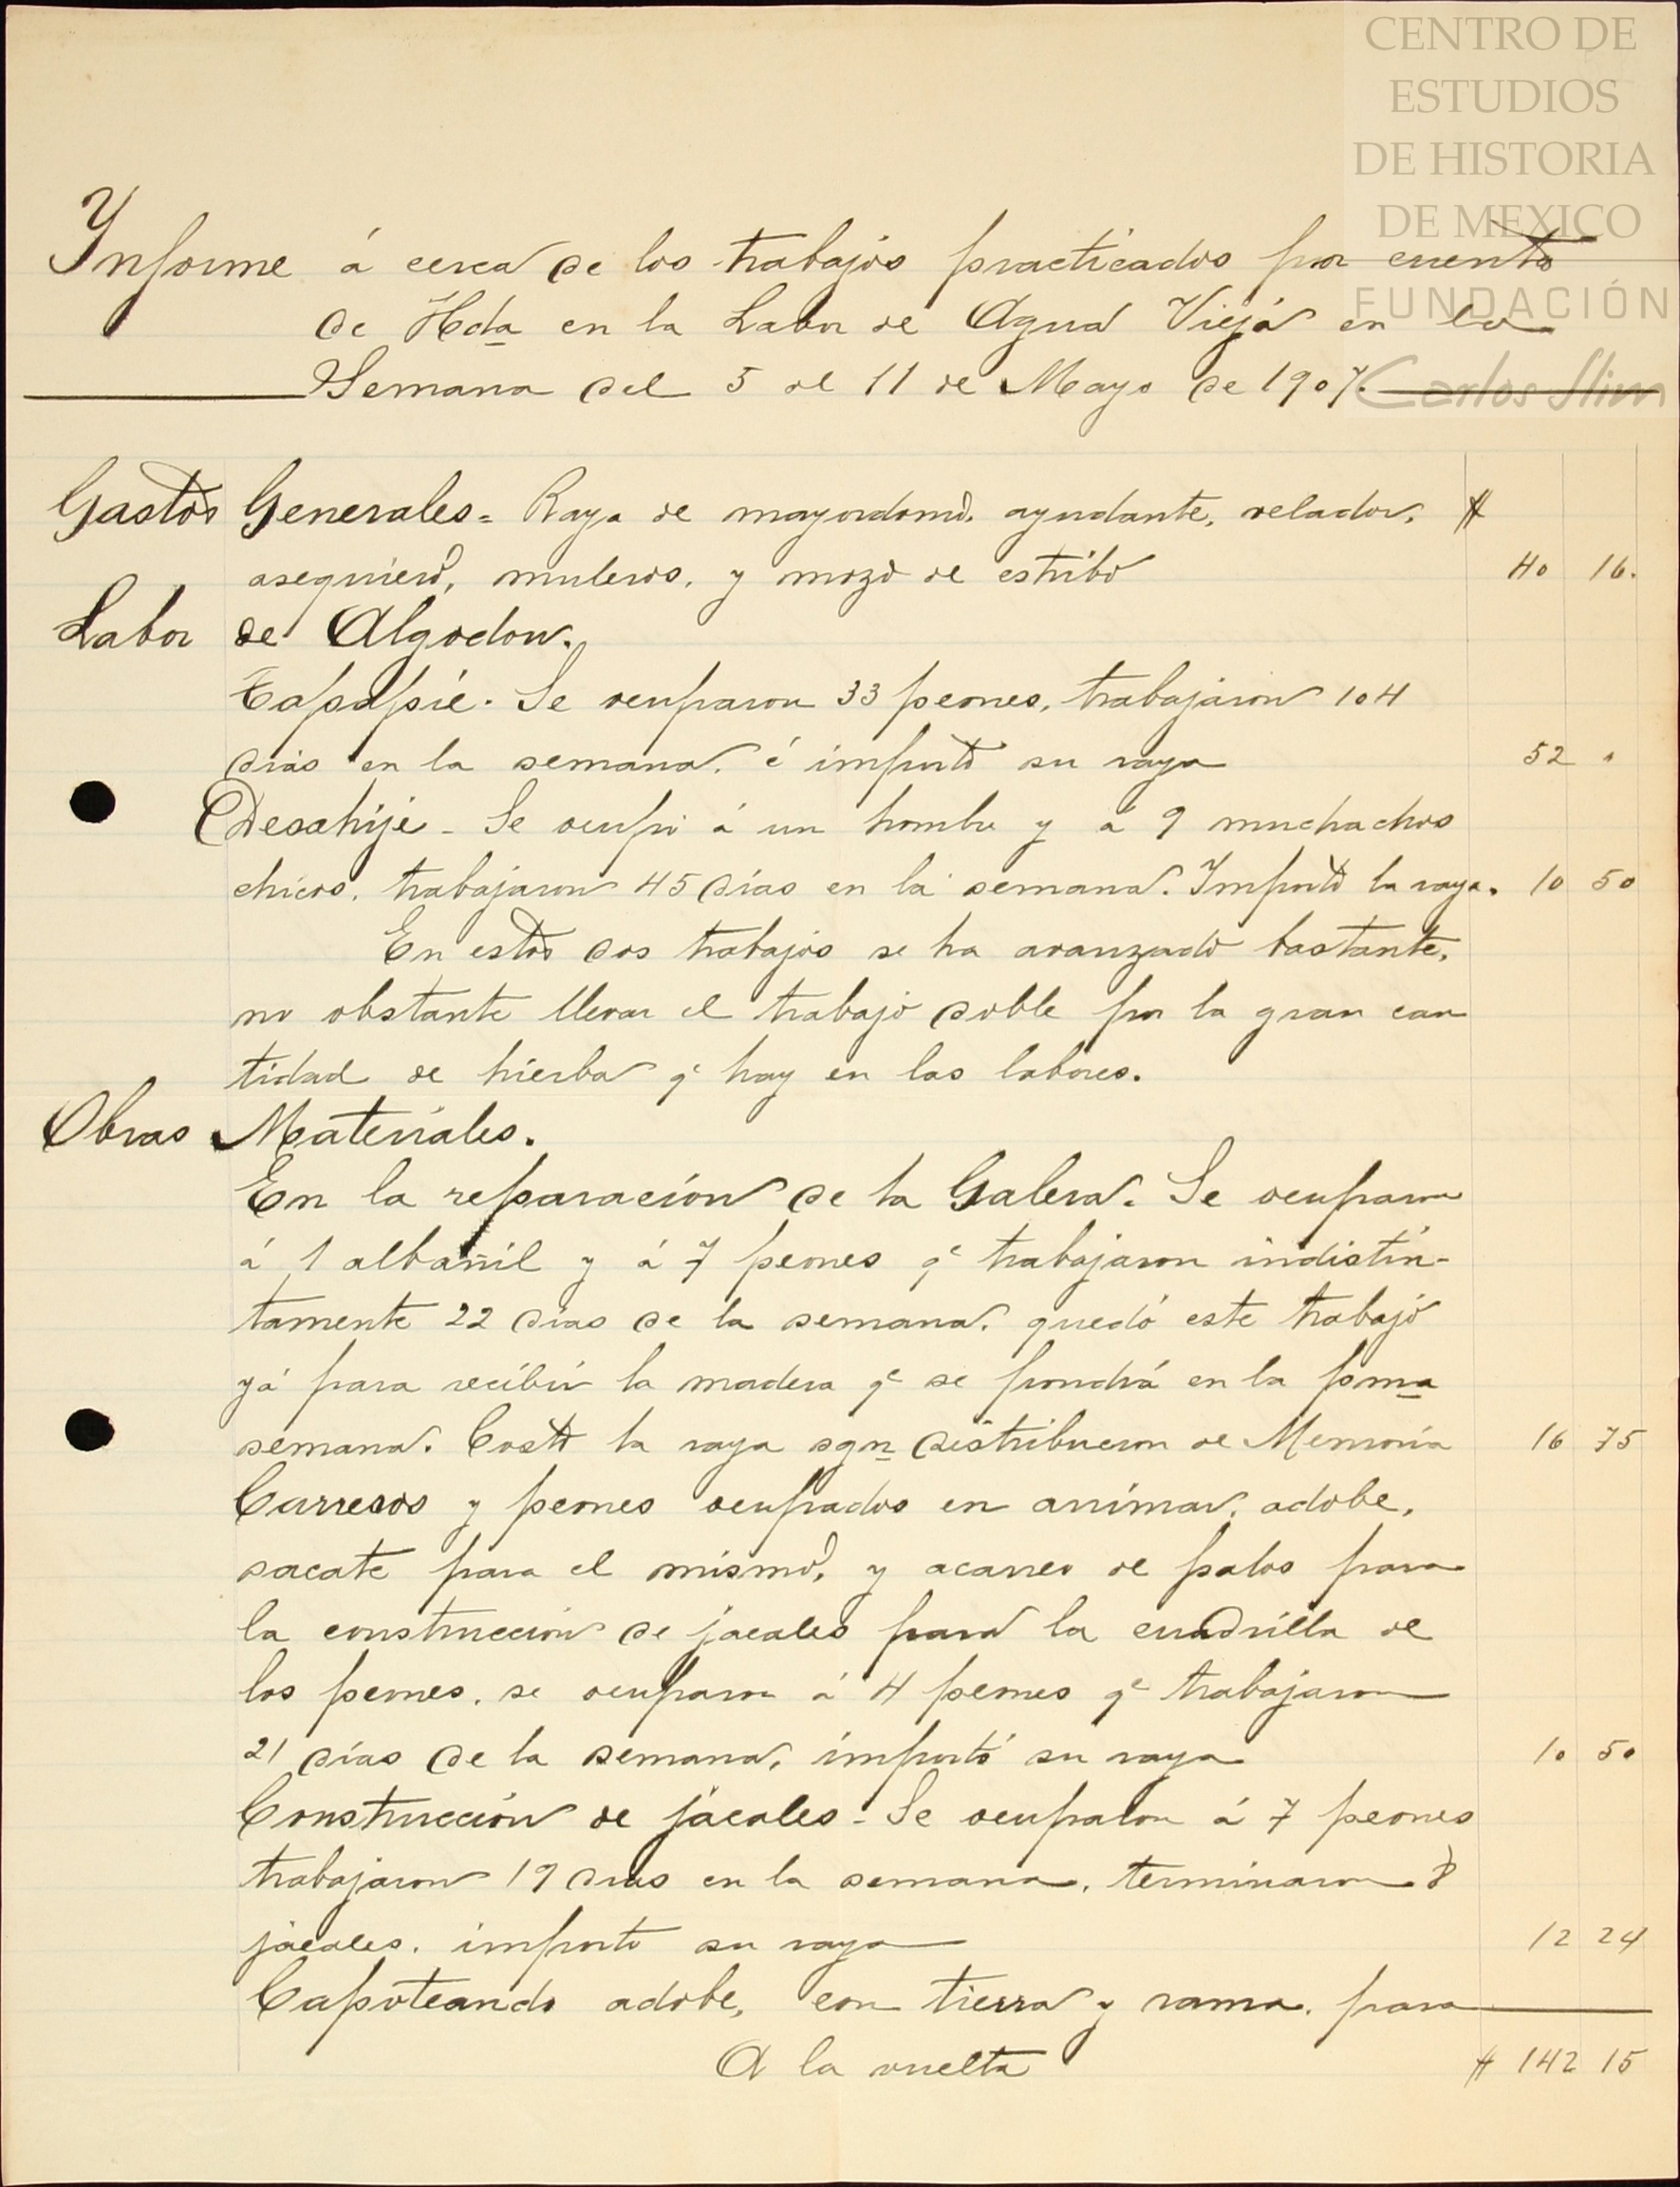 CENTRO DE
ESTUDIOS
DE HISTORIA
DE MEXICO
FUNDACIÓN
Carlos Slim
Ynforme á cerca de los trabajos practicados por cuenta
de Hda en la Labor de Agua Vieja en la
Semana del 5 al 11 de Mayo de 1907.
Gastos Generales = Raya de mayordomo, ayudante, velador, $
asequiero, muleros, y mozo de estribo 40 16.
Labor de Algodon.
Tapapié. Se ocuparon 33 peones, trabajaron 104
dias en la semana, é importó su raya 52 "
Desahije - Se ocupó á un hombre y á 9 muchachos
chicos, trabajaron 45 dias en la semana. Importó la raya. 10 50
En estos dos trabajos se ha avanzado bastante,
no obstante llevar el trabajo doble por la gran can
tidad de hierba qe hay en las labores.
Obras Materiales.
En la reparación de la Galera. Se ocuparon
á 1 albañil y á 7 peones qe trabajaron indistin-
tamente 22 dias de la semana, quedó este trabajo
yá para recibir la madera qe se pondrá en la pma
semana. Costó la raya sgn distribucion de Memoria 16 75
Carreros y peones ocupados en arrimar, adobe,
sacate para el mismo, y acarreo de palos para
la construccion de jacales para la cuadrilla de
los peones, se ocuparon á 4 peones qe trabajaron
21 dias de la semana, importó su raya 10 50
Construcción de jacales - Se ocuparon á 7 peones
trabajaron 19 dias en la semana, terminaron 8
jacales, importó su raya 12 24
Capoteando adobe, con tierra y rama, para
A la vuelta $ 142 15